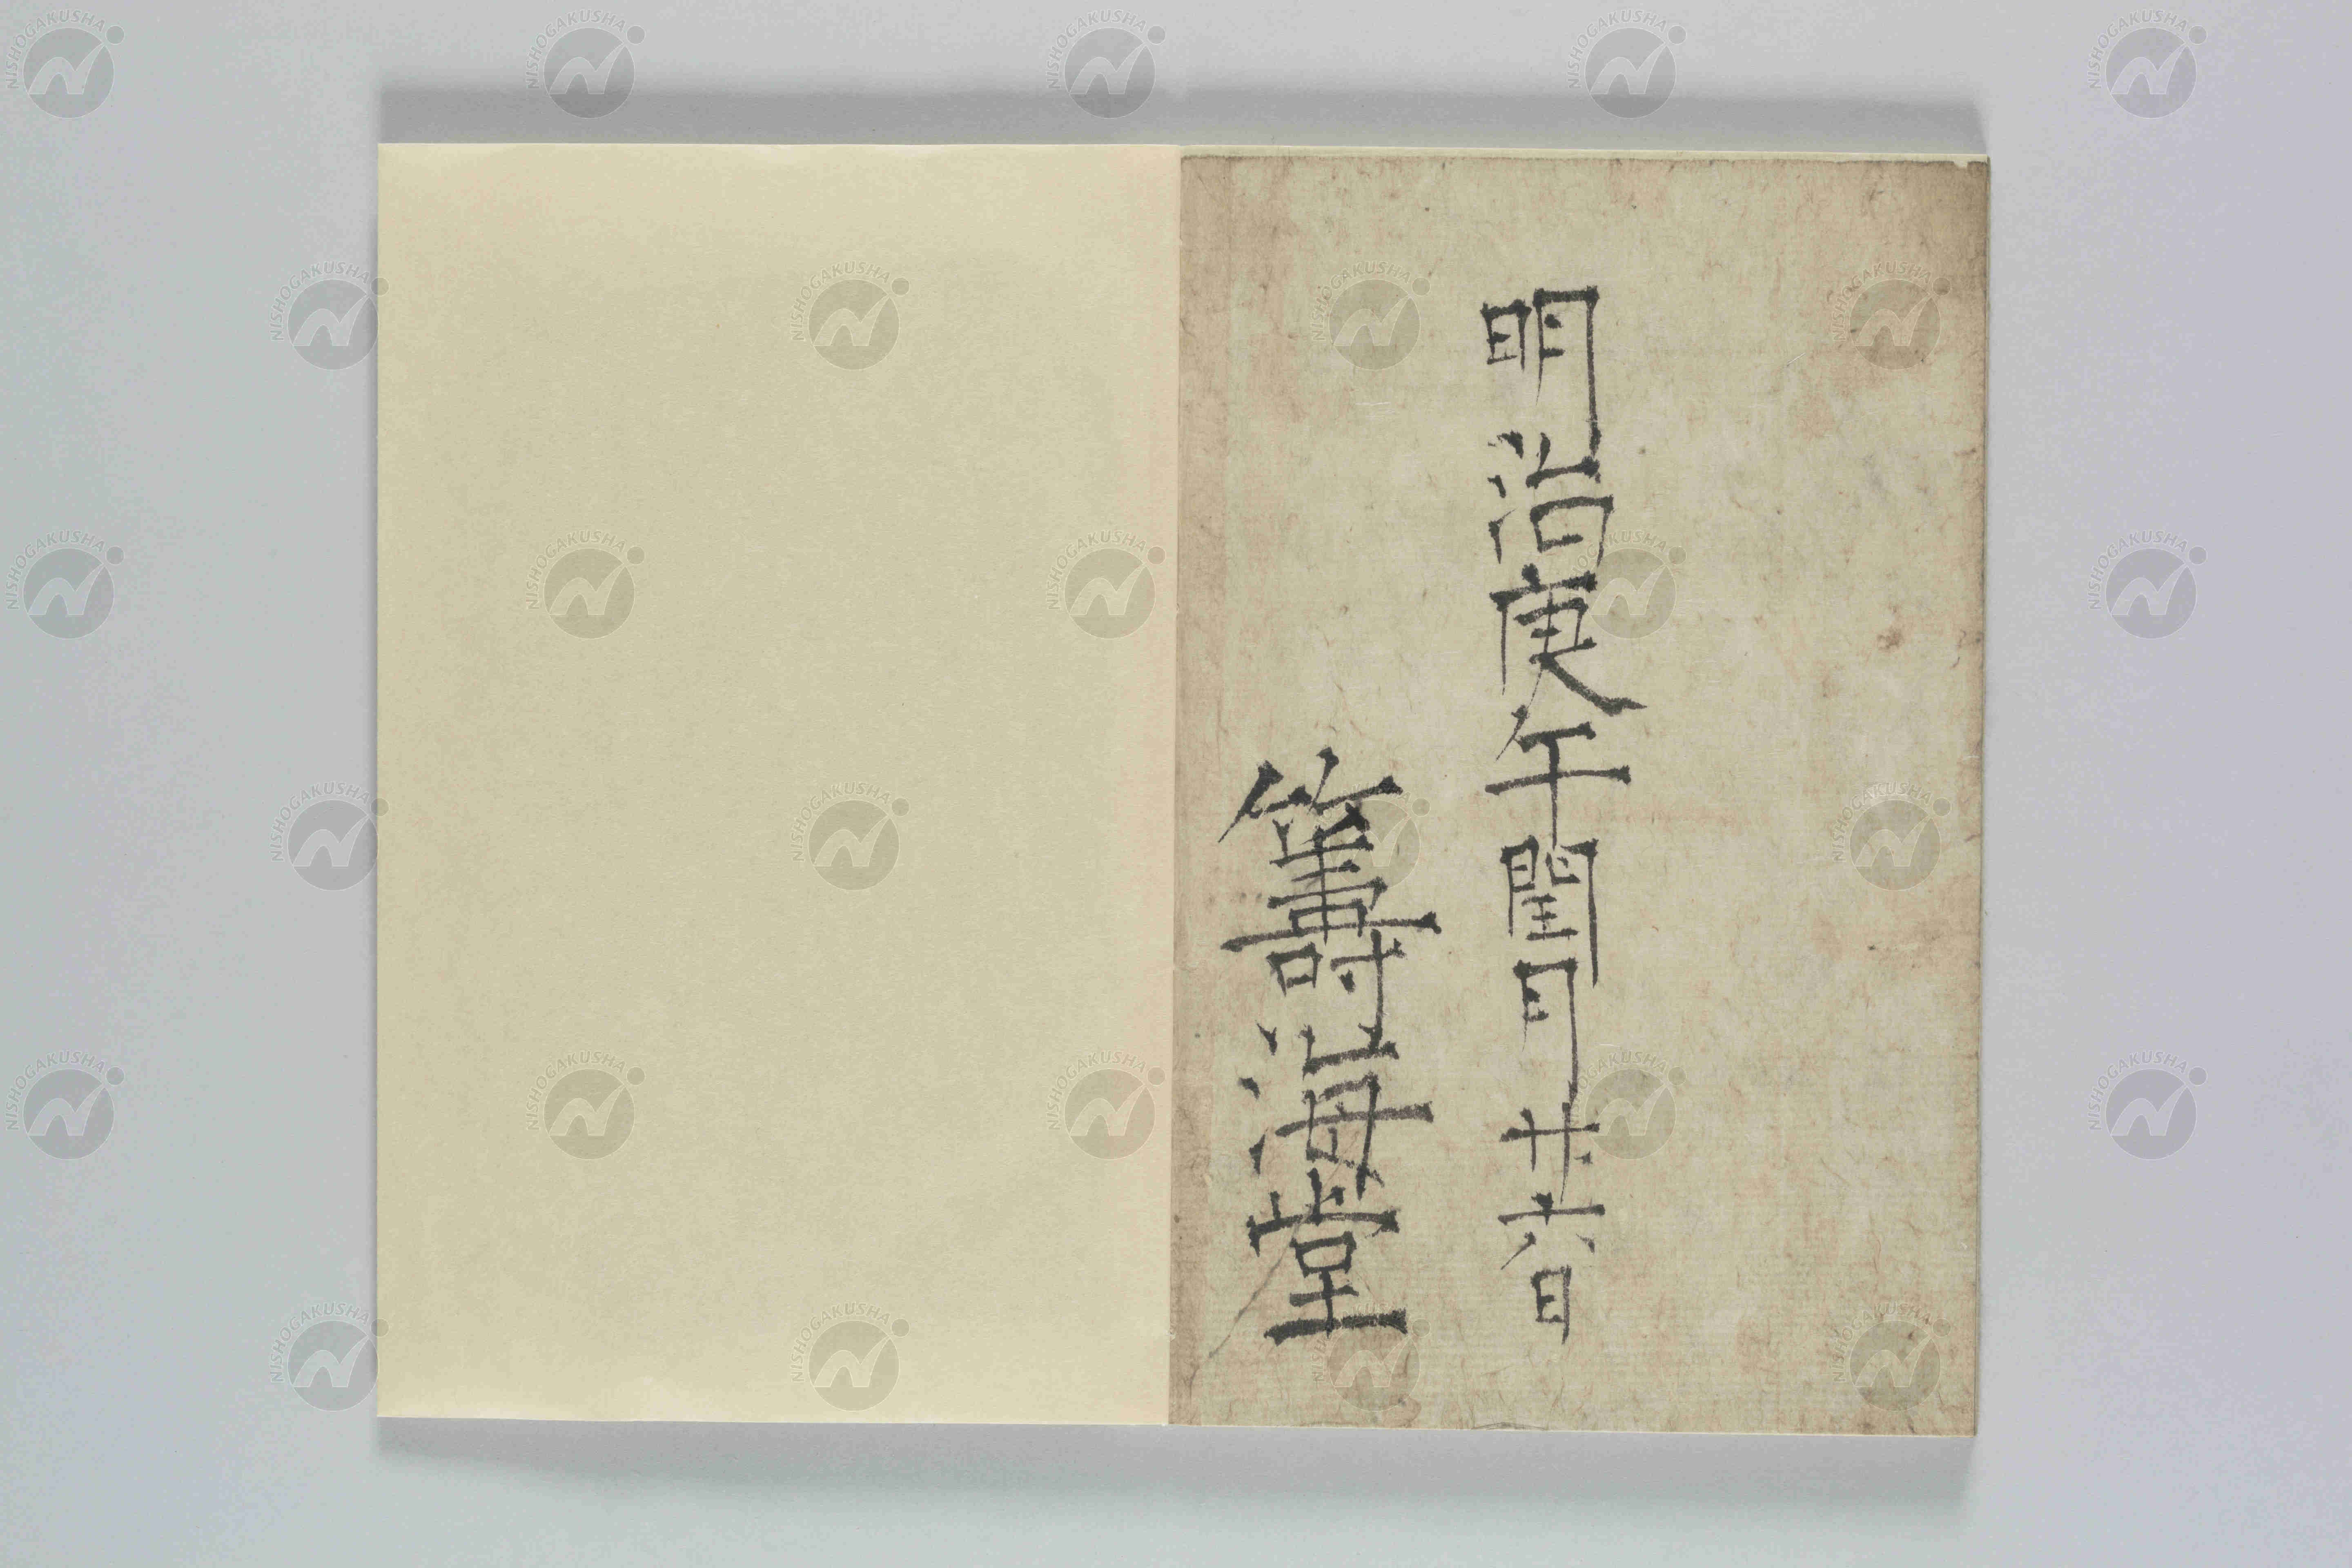 明治庚午閏月廿六日
籌海堂
NISHOGAKUSHA